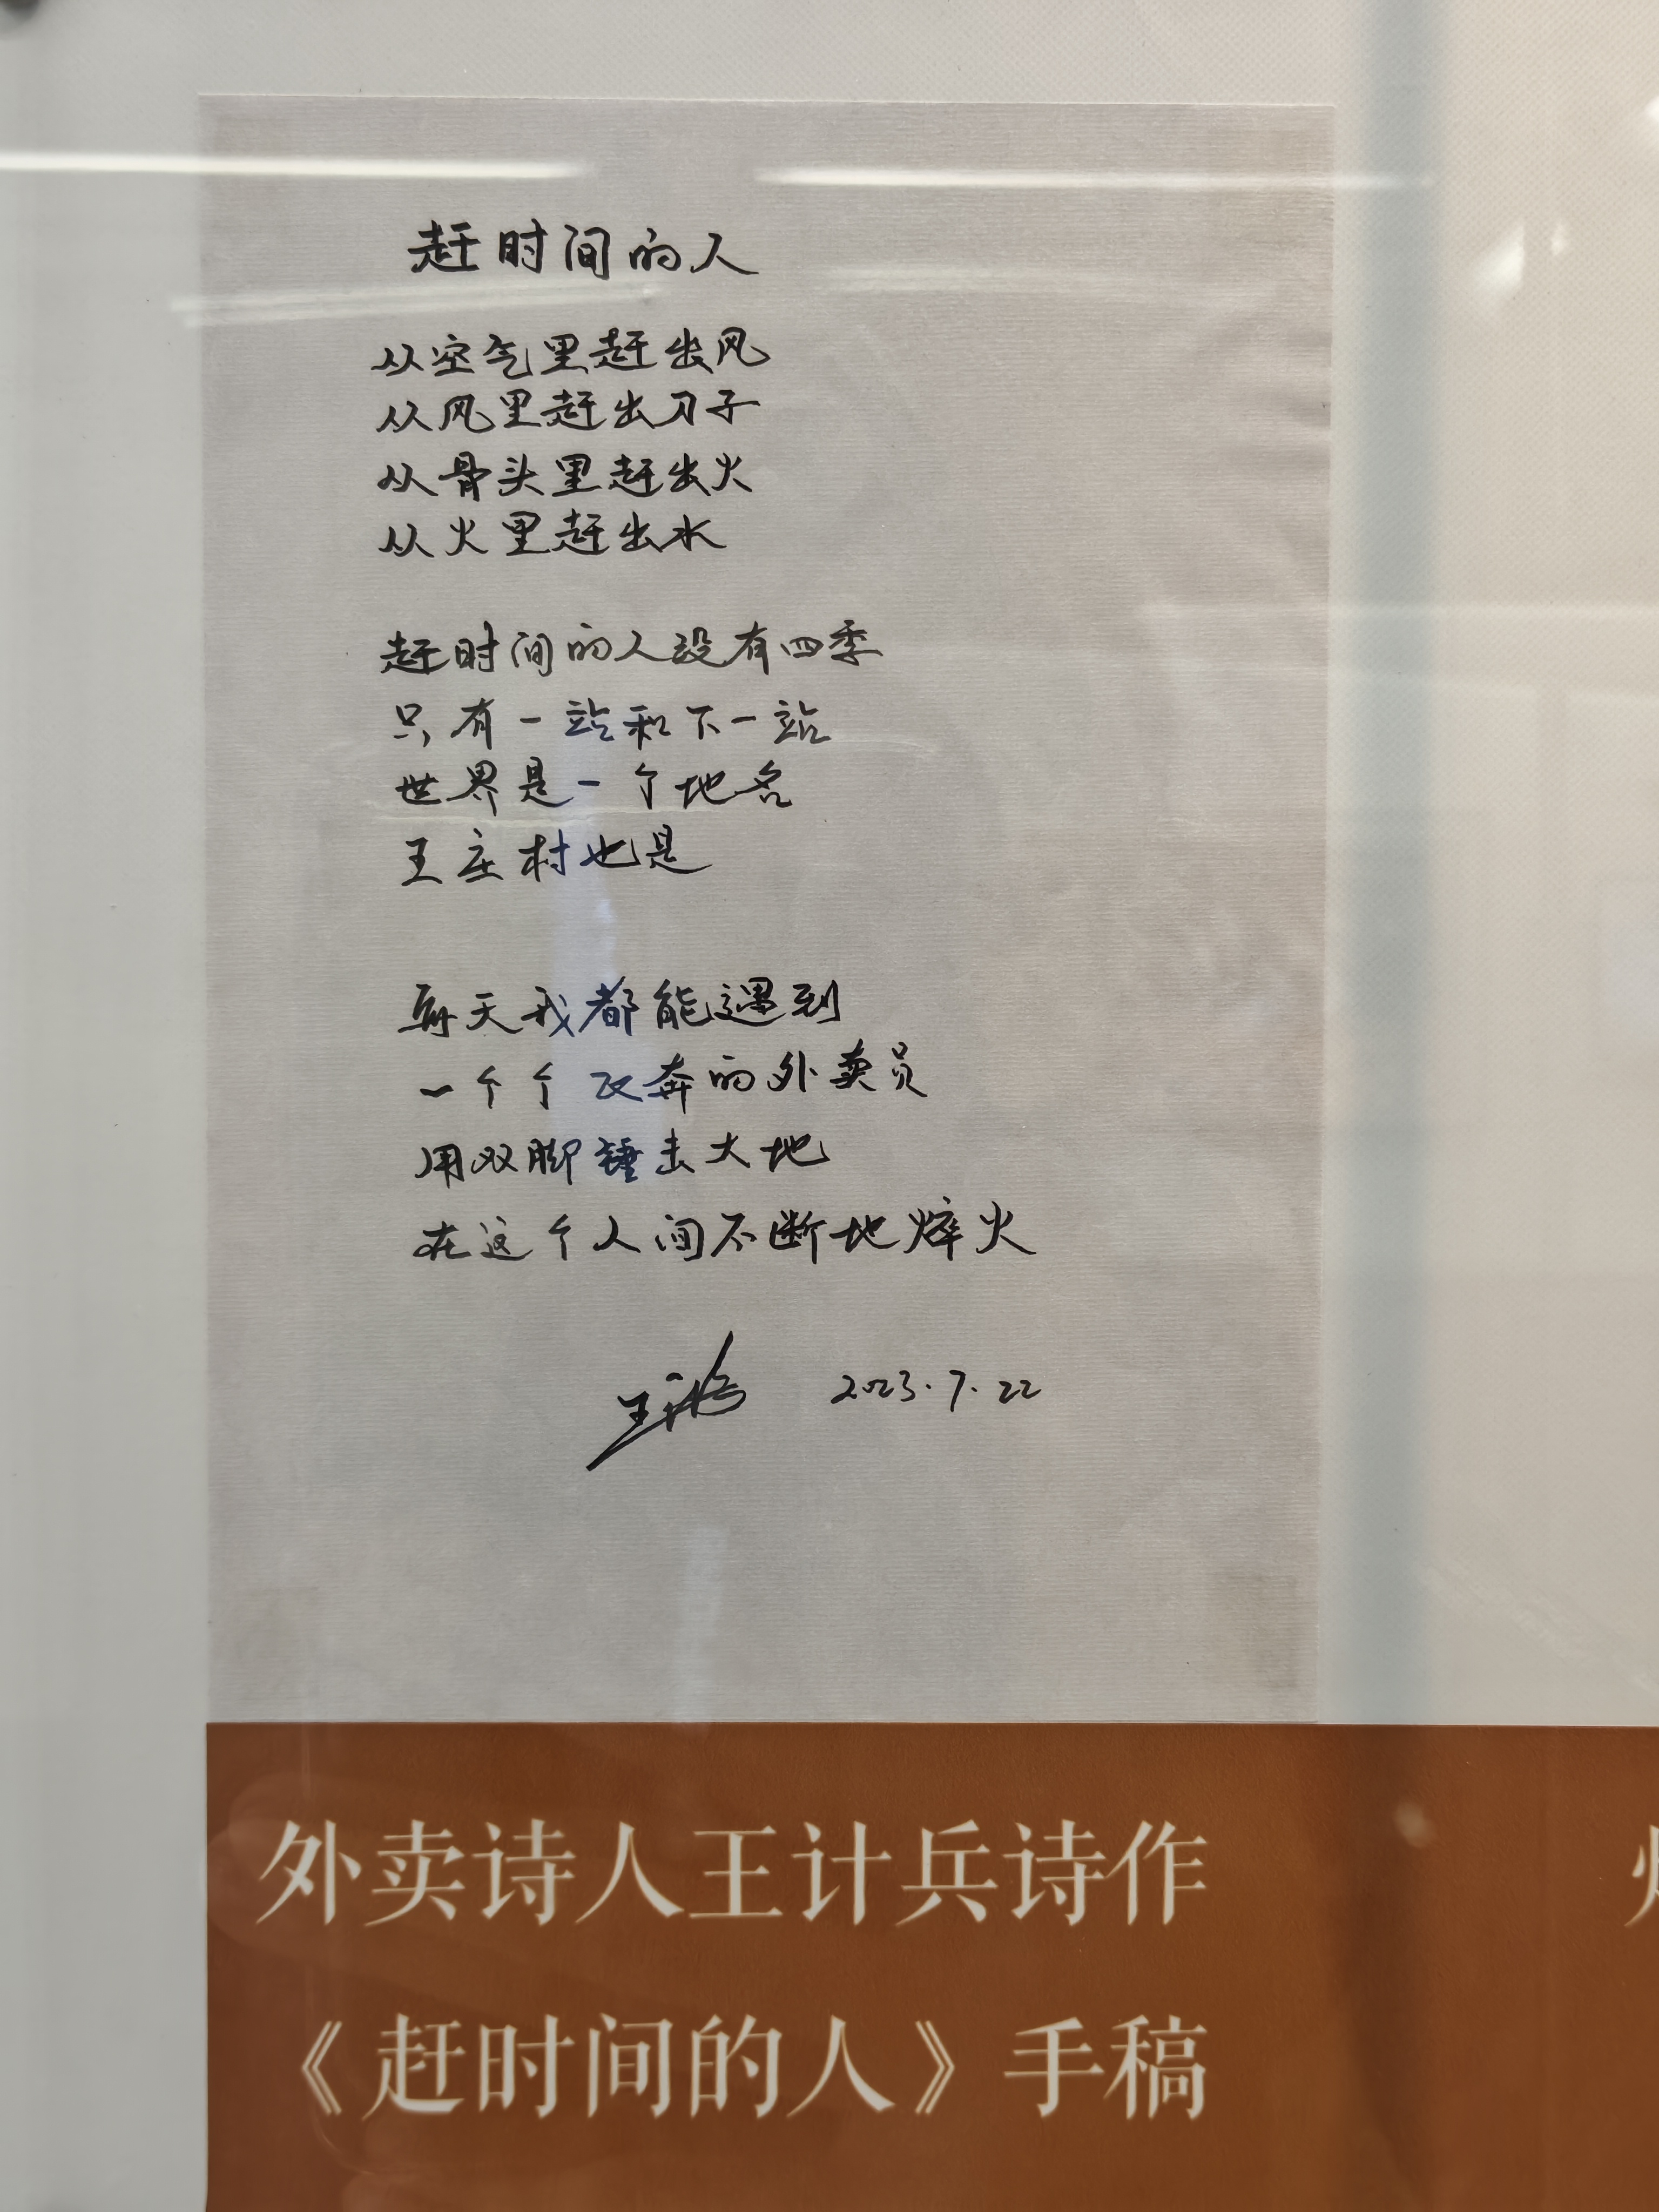 赶时间的人
从空气里赶出风
从风里赶出刀子
从骨头里赶出火
从火里赶出水
赶时间的人没有四季
只有一站和下一站
世界是一个地名
王庄村也是
每天我都能遇到
一个个飞奔的外卖员
用双脚锤击大地
在这个人间不断地焠火
2023.7.22
外卖诗人王计兵诗作
《赶时间的人》手稿